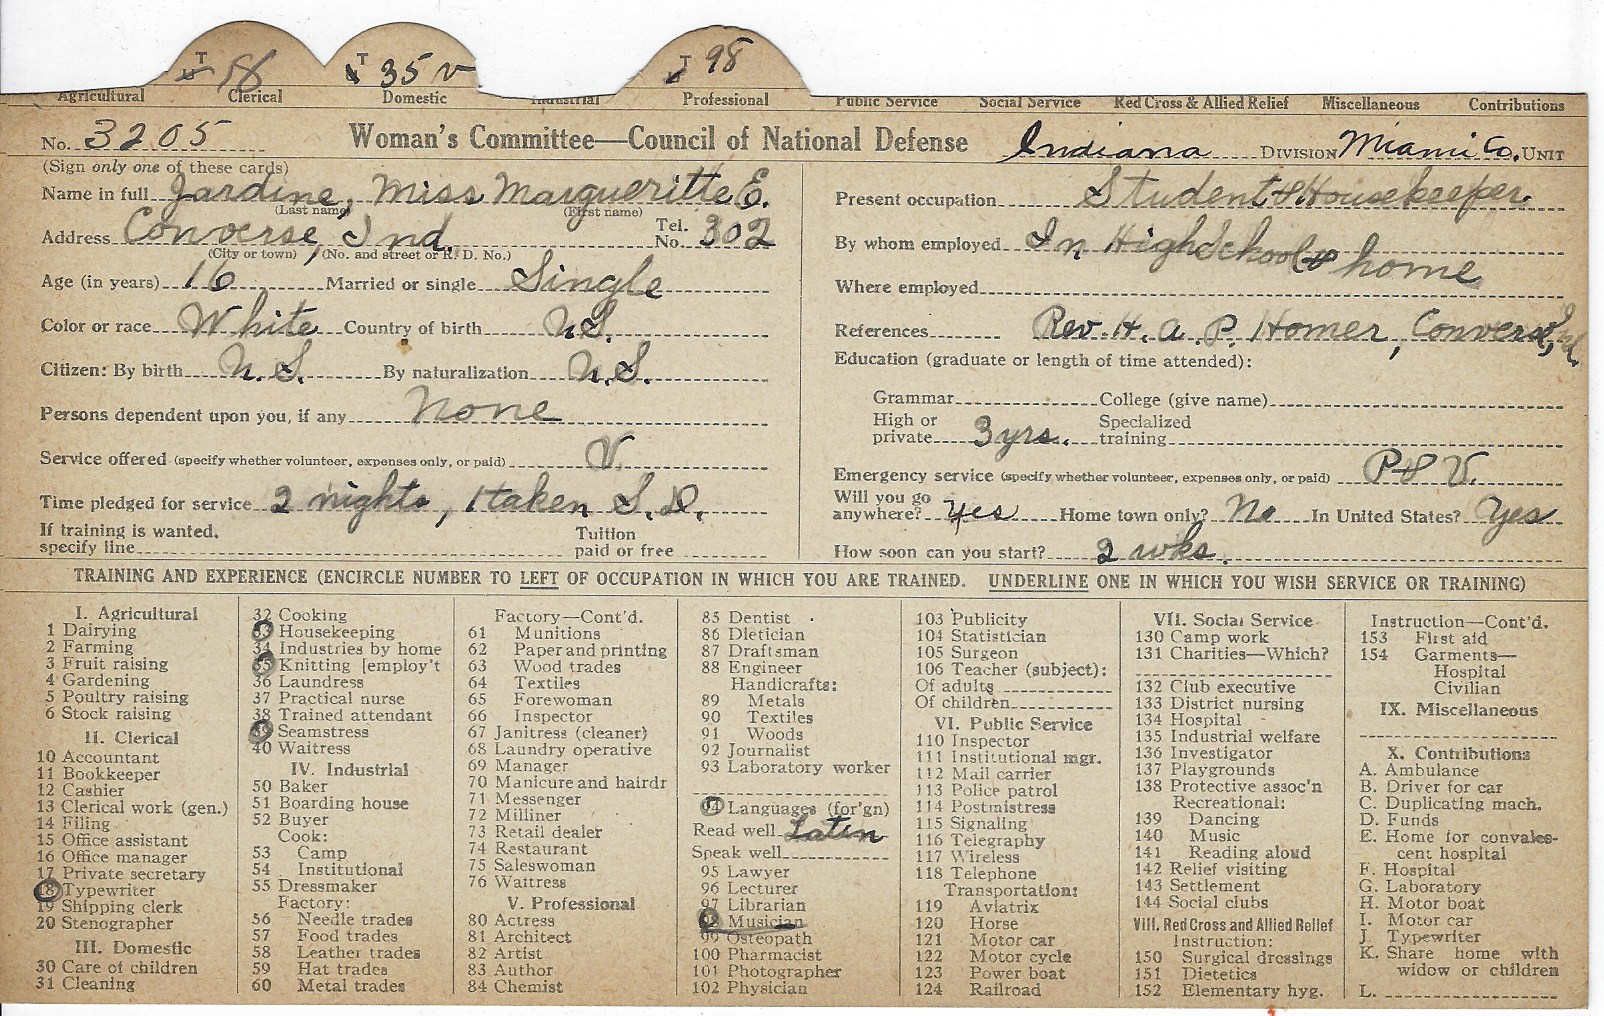 T 35 v T 98
Agricultural Clerical Domestic Industrial Professional Public Service Social Service Red Cross & Allied Relief Miscellaneous Contributions
No. 3205 Woman's Committee—Council of National Defense Indiana DIVISION Miami Co. UNIT
(Sign only one of these cards)
Name in full Jardine, Miss Margueritte E.
(Last name) (First name)
Address Converse, Ind. Tel. No. 302
(City or town) (No. and street or R. D. No.)
Age (in years) 16 Married or single Single
Color or race White Country of birth U.S.
Citizen: By birth U.S. By naturalization U.S.
Persons dependent upon you, if any None
Service offered (specify whether volunteer, expenses only, or paid) V.
Time pledged for service 2 nights, 1 taken S.D.
If training is wanted, specify line Tuition paid or free
Present occupation Student & Housekeeper
By whom employed In High School & home
Where employed
References Rev. H. A. P. Homer, Converse, Ind.
Education (graduate or length of time attended):
Grammar College (give name)
High or private 3 yrs. Specialized training
Emergency service (specify whether volunteer, expenses only, or paid) P & V.
Will you go anywhere? Yes Home town only? No In United States? Yes
How soon can you start? 2 wks.
TRAINING AND EXPERIENCE (ENCIRCLE NUMBER TO LEFT OF OCCUPATION IN WHICH YOU ARE TRAINED. UNDERLINE ONE IN WHICH YOU WISH SERVICE OR TRAINING)
I. Agricultural
1 Dairying
2 Farming
3 Fruit raising
4 Gardening
5 Poultry raising
6 Stock raising
II. Clerical
10 Accountant
11 Bookkeeper
12 Cashier
13 Clerical work (gen.)
14 Filing
15 Office assistant
16 Office manager
17 Private secretary
18 Typewriter
19 Shipping clerk
20 Stenographer
III. Domestic
30 Care of children
31 Cleaning
32 Cooking
33 Housekeeping
34 Industries by home
35 Knitting [employ't
36 Laundress
37 Practical nurse
38 Trained attendant
39 Seamstress
40 Waitress
IV. Industrial
50 Baker
51 Boarding house
52 Buyer
Cook:
53 Camp
54 Institutional
55 Dressmaker
Factory:
56 Needle trades
57 Food trades
58 Leather trades
59 Hat trades
60 Metal trades
Factory—Cont'd.
61 Munitions
62 Paper and printing
63 Wood trades
64 Textiles
65 Forewoman
66 Inspector
67 Janitress (cleaner)
68 Laundry operative
69 Manager
70 Manicure and hairdr
71 Messenger
72 Milliner
73 Retail dealer
74 Restaurant
75 Saleswoman
76 Waitress
V. Professional
80 Actress
81 Architect
82 Artist
83 Author
84 Chemist
85 Dentist
86 Dietician
87 Draftsman
88 Engineer
Handicrafts:
89 Metals
90 Textiles
91 Woods
92 Journalist
93 Laboratory worker
94 Languages (for'gn)
Read well Latin
Speak well
95 Lawyer
96 Lecturer
97 Librarian
98 Musician
99 Osteopath
100 Pharmacist
101 Photographer
102 Physician
103 Publicity
104 Statistician
105 Surgeon
106 Teacher (subject):
Of adults
Of children
VI. Public Service
110 Inspector
111 Institutional mgr.
112 Mail carrier
113 Police patrol
114 Postmistress
115 Signaling
116 Telegraphy
117 Wireless
118 Telephone
Transportation:
119 Aviatrix
120 Horse
121 Motor car
122 Motor cycle
123 Power boat
124 Railroad
VII. Social Service
130 Camp work
131 Charities—Which?
132 Club executive
133 District nursing
134 Hospital
135 Industrial welfare
136 Investigator
137 Playgrounds
138 Protective assoc'n
Recreational:
139 Dancing
140 Music
141 Reading aloud
142 Relief visiting
143 Settlement
144 Social clubs
VIII. Red Cross and Allied Relief
Instruction:
150 Surgical dressings
151 Dietetics
152 Elementary hyg.
Instruction—Cont'd.
153 First aid
154 Garments—
Hospital
Civilian
IX. Miscellaneous
X. Contributions
A. Ambulance
B. Driver for car
C. Duplicating mach.
D. Funds
E. Home for convales-
cent hospital
F. Hospital
G. Laboratory
H. Motor boat
I. Motor car
J. Typewriter
K. Share home with
widow or children
L.